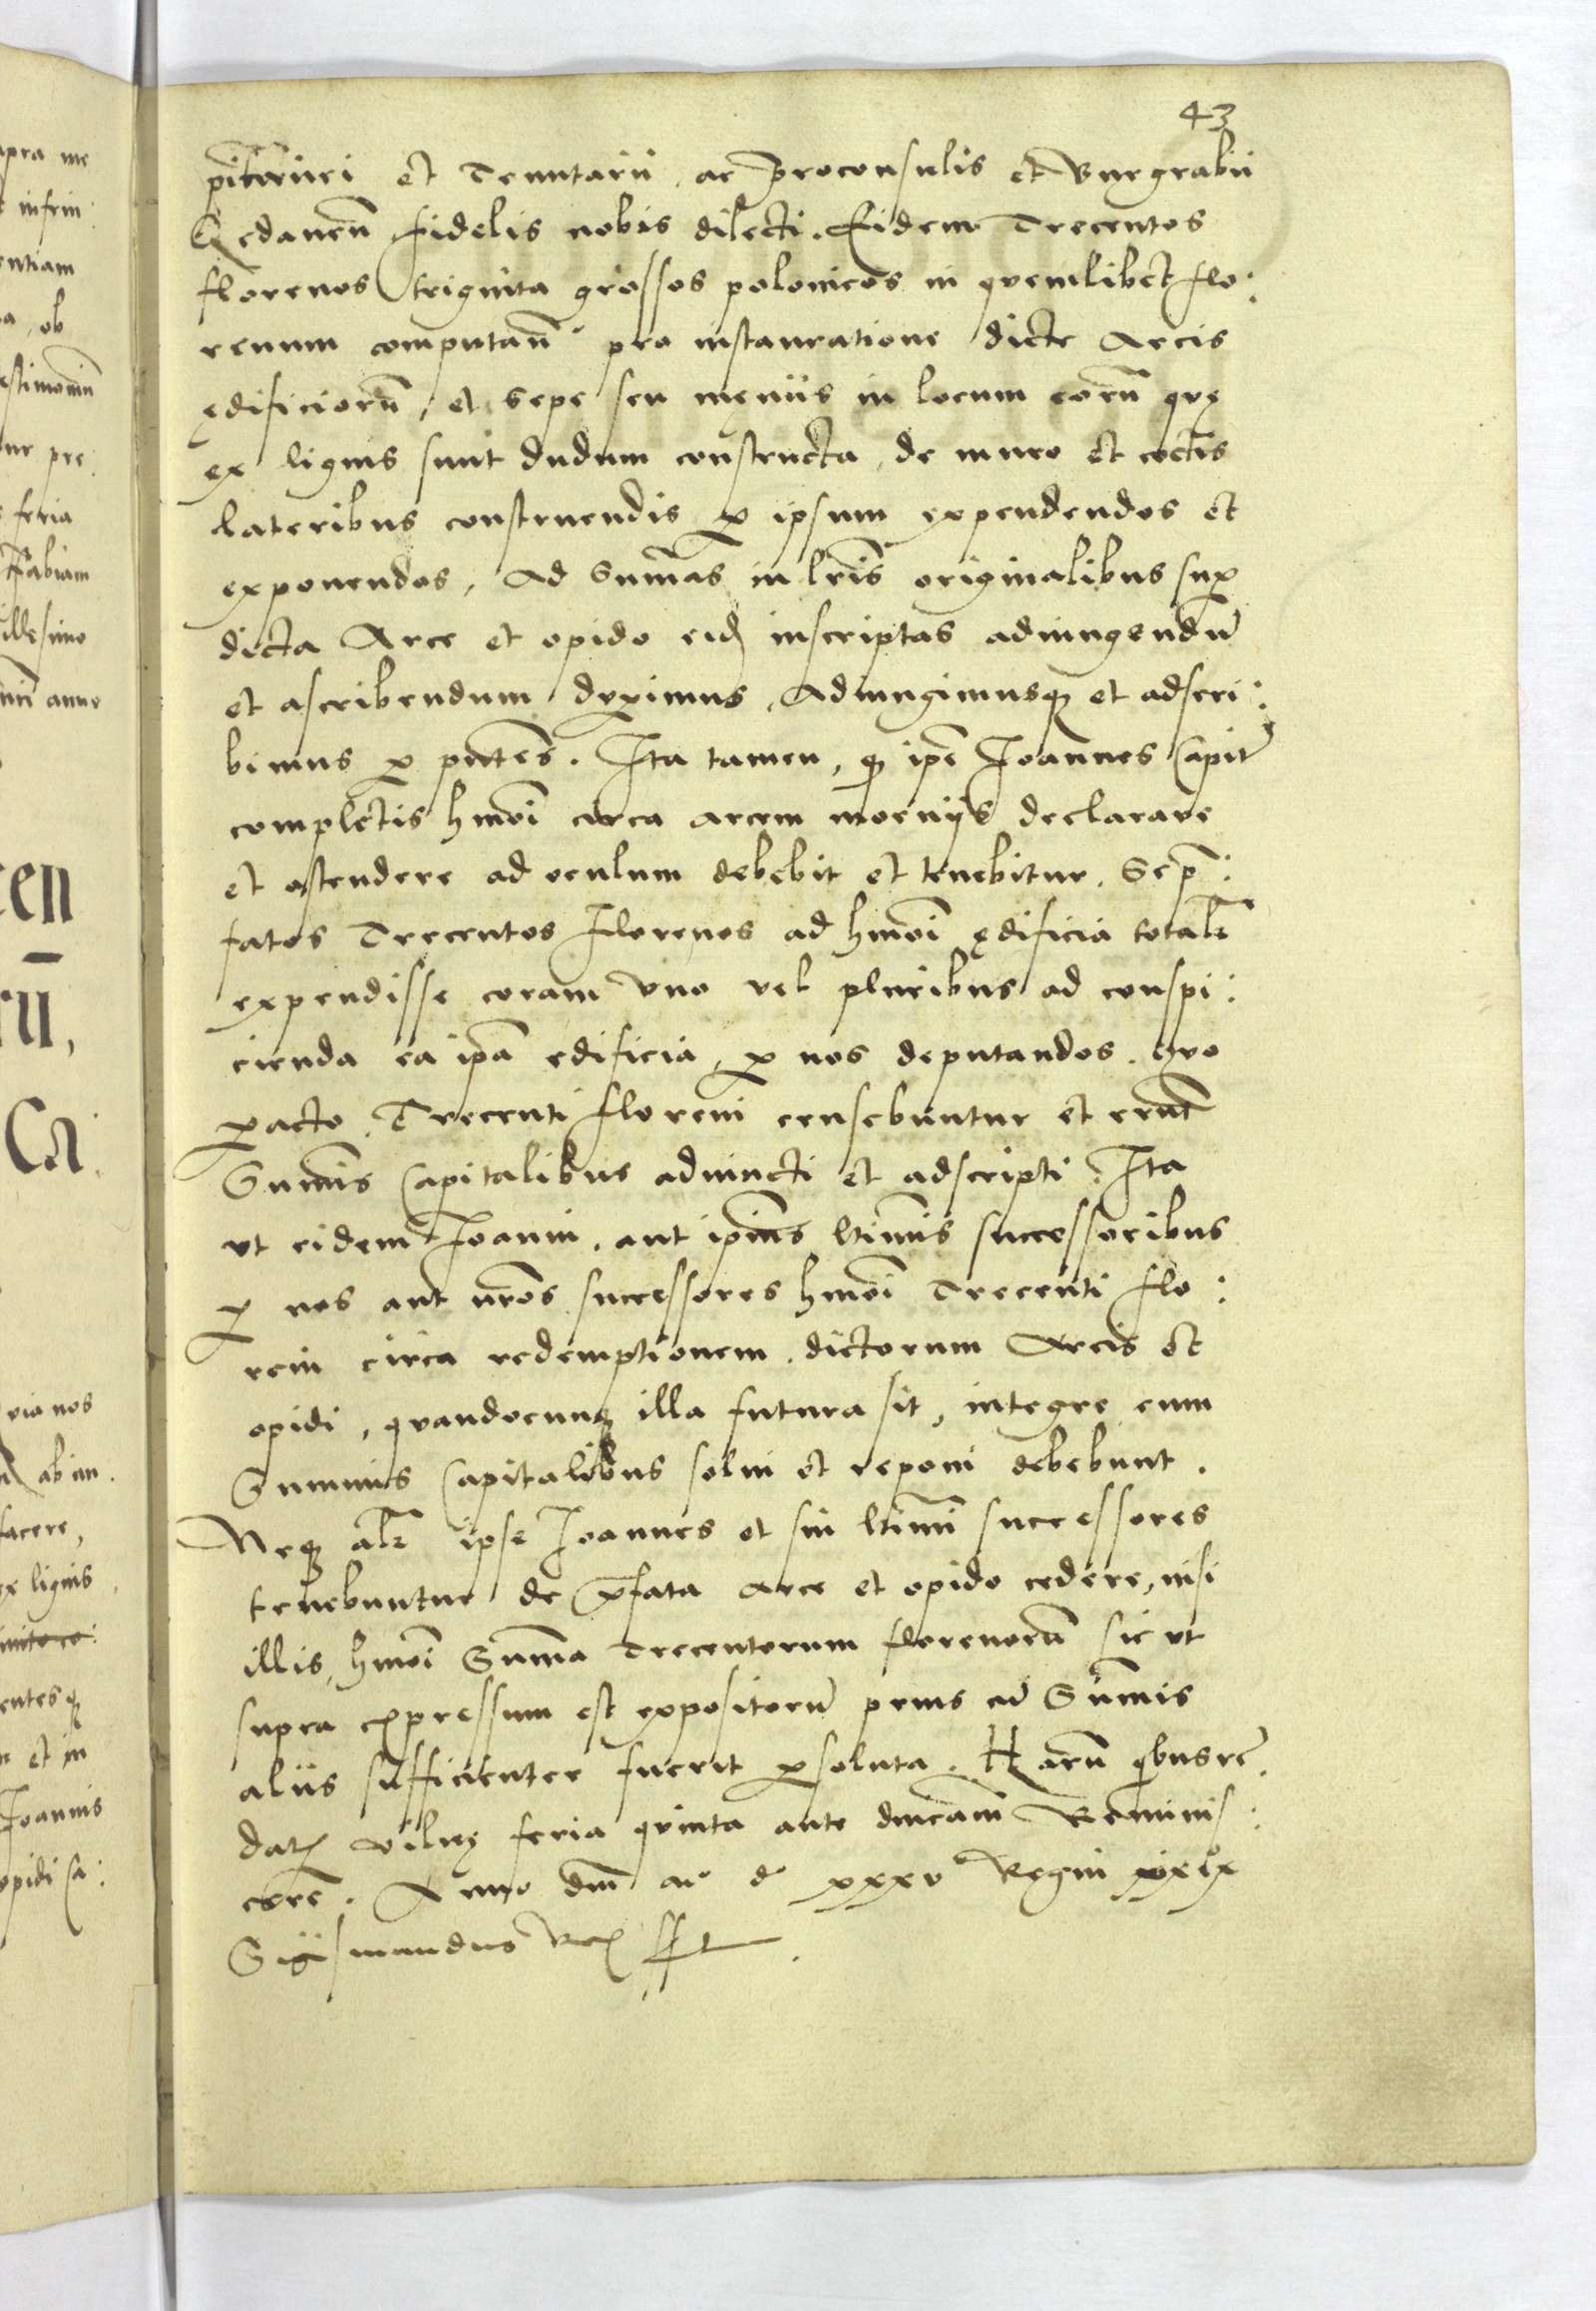 43
pitanei et Tenutarii, ac proconsulis et Burgrabii
Gedaneñ fidelis nobis dilecti. Eidem Trecentos
florenos triginta grossos polonicos in quemlibet flo:
renum computañ pro instauratione dicte Arcis
ędificiorū, et sepe seu męniis in locum eorū quę
ex lignis sunt dudum constructa, de muro et coctis
lateribus construendis ꝑ ipsum expendendos et
exponendos, Ad Sum̄as in lr̄is originalibus suꝑ
dicta Arce et opido eid inscriptas adiungendū
et ascribendum duximus, Adiungimusq̨ et adscri:
bimus ꝑ pn̄tes. Ita tamen, q̨ ip̄e Ioannes Capit̄
completis hmōi circa arcem moeniis declarare
et ostendere ad oculum debebit et tenebitur, Se p̄:
fatos Trecentos Florenos ad hmōi ędificia totalr̄
expendisse coram uno vel pluribus ad conspi:
cienda ea ip̄a edificia, ꝑ nos deputandos. Quo
ꝑacto Trecenti floreni censebuntur et erunt
Sum̄is Capitalibus adiuncti et adscripti. Ita
ut eidem Ioanni, aut ipius ltīmis successoribus
ꝑ nos aut nr̄os successores hmōi Trecenti flo:
reni circa redemptionem dictorum Arcis et
opidi, quandocunq̨ illa futura sit, integre cum
Summis Capitalibus solui et reponi debebunt.
Neq̨ alr̄ ipse Ioannes et sui ltīmi successores
tenebuntur de p̄fata arce et opido cedere, nisi
illis, hmōi Sum̄a Trecentorum florenorū sic ut
supra expressum est expositorū prius cū Sum̄is
aliis sufficienter fuerit ꝑsoluta. Harū qbus rē.
Dat Vilnę feria quinta ante dn̄icam Reminis:
cerē. Anno dn̄i M° d° xxxv Regni xxix
Sigismundus Rex sst